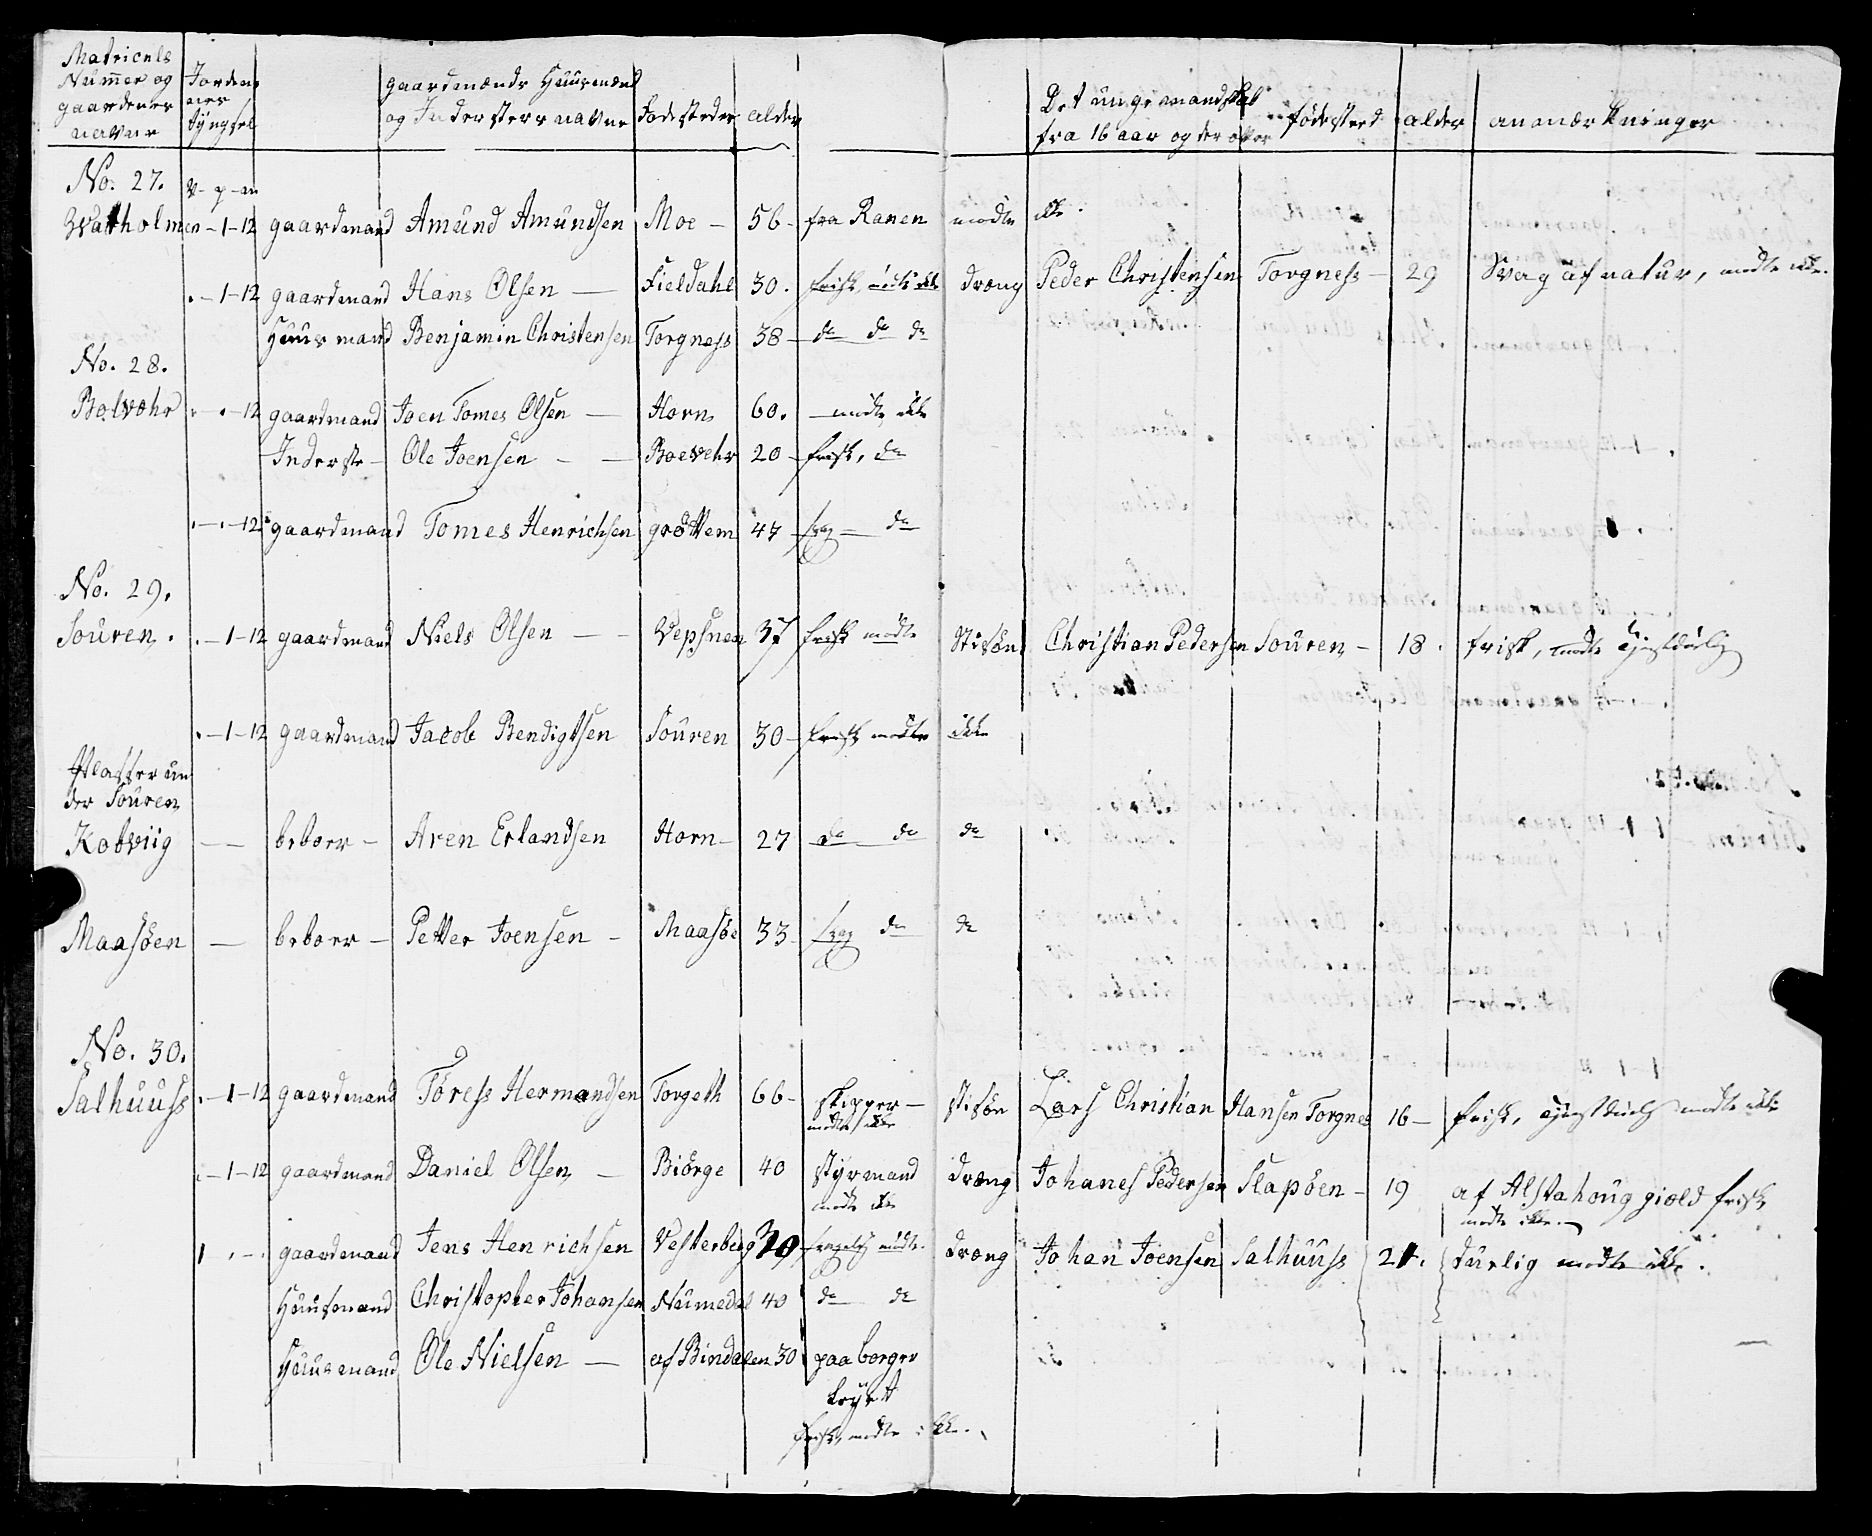 Matriculs Nummer og gaardenes navne
Jordenes tÿngsel
gaardmænds Huusmænd og Inderster navne
Fødesteder
alder
Det unge mandskab fra 16 aar og der over
fødesteed
alder
anmærkninger
No. 27. V- p- m
Watholmen - 1 - 12 gaardmand Amund Amundsen Moe - 56 - fra Ranen modte ikke.
. - 1 - 12 gaardmand Hans Olsen — Fieldahl 30. frisk, modte ikke dræng Peder Christensen Torgness - 29 Svag af natur, modte ikke.
Huusmand Benjamin Christensen Torgness 38 - do do do
No. 28.
Bolvohr . . - 12 gaardmand Joen Tomes Olsen — Horn 60. — modte ikke
Inderste - Ole Joensen - — Boevehr 20 - frisk, do
. - . - 12 gaardmand Tomes Henrichsen grøttem 47 svag — do
No. 29.
Souren. . - 1 - 12 gaardmand Niels Olsen - - Vepsnen 37 frisk modte Stisøn Christian Pedersen Souren - 18. frisk, modte
. - 1 - 12 gaardmand Jacob Bendigtsen Souren 30 - frisk modte ikke
Platser un
der Souren
Kobviig — beboer - Aren Erlandsen Horn - 27 do do do
Maasøen — beboer - Petter Joensen - Maasøe 33 svag do do
No. 30.
Salhuuss . - 1 - 12 gaardmand Tøress Hermandsen Torgeth 66 - skipper - stisøn Lars Christian Hansen Torgnes 16 - frisk, modte ikke
modte ikke
. - 1 - 12 gaardmand Daniel Olsen — Biørge 40 styrmand dræng Johanes Pedersen Slapøen - 19 af Alstahoug gield frisk
modte ikke modte ikke. -
1 . - . gaardmand Jens Henrichsen Vesterberg modte. dræng Johan Joensen Salhuuss 21. durlig modte ikke.
Huusmand Christopher Johansen Numedal 40 do do
Huusmand Ole Nielsen — af Bindalen 30 paa borger
frisk, modte ikke.